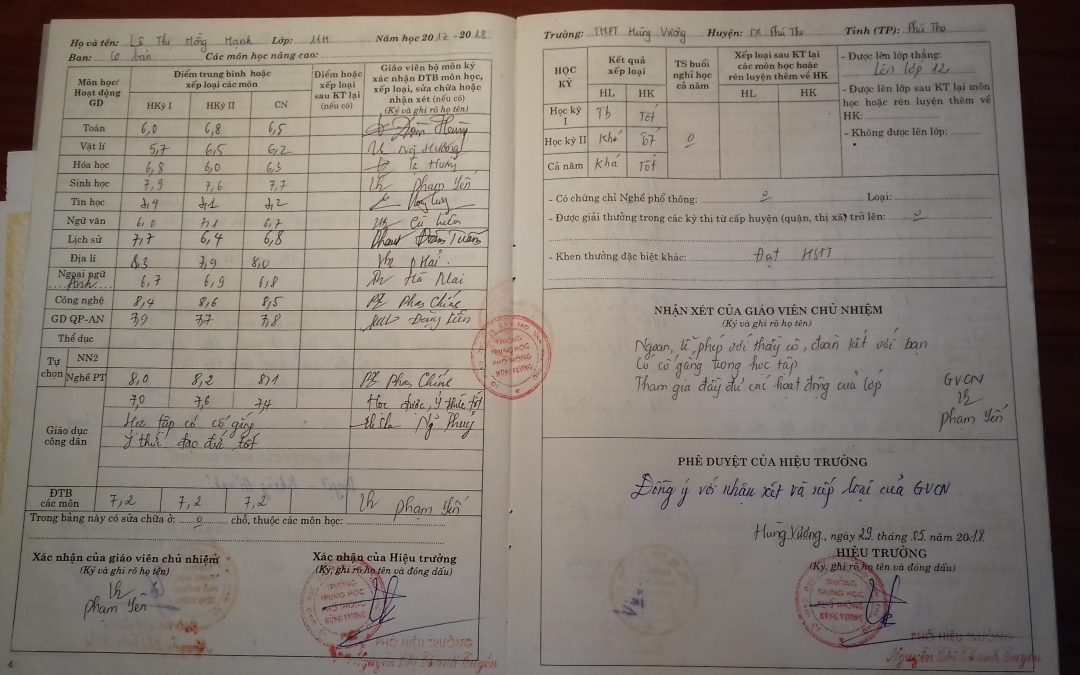 Họ và tên: Lê Thị Hồng Hạnh Lớp: 11H Năm học 2017 - 2018
Ban: Cơ bản Các môn học nâng cao:
Môn học/ Hoạt động GD
Điểm trung bình hoặc xếp loại các môn
HKỳ I HKỳ II CN
Điểm hoặc xếp loại sau KT lại (nếu có)
Giáo viên bộ môn ký xác nhận ĐTB môn học, xếp loại, sửa chữa hoặc nhận xét (nếu có)
(Ký và ghi rõ họ tên)
Toán 6,0 6,8 6,5
Vật lí 5,7 6,5 6,2
Hóa học 6,8 6,0 6,3
Sinh học 7,9 7,6 7,7 Phạm Yến
Tin học 7,4 7,1 7,2
Ngữ văn 6,0 7,1 6,7
Lịch sử 7,7 6,4 6,8
Địa lí 8,3 7,9 8,0 P Hải
Ngoại ngữ Anh 6,7 6,9 6,8 Hà Mai
Công nghệ 8,4 8,6 8,5 Phan Chính
GD QP-AN 7,9 7,7 7,8
Thể dục
Tự chọn
NN2
Nghề PT 8,0 8,2 8,1 Phan Chính
Giáo dục công dân
7,0 7,6 7,4 Học được, ý thức tốt
Học tập có cố gắng
Ý thức đạo đức tốt
ĐTB các môn 7,2 7,2 7,2 Phạm Yến
Trong bảng này có sửa chữa ở: 0 chỗ, thuộc các môn học:
Xác nhận của giáo viên chủ nhiệm
(Ký và ghi rõ họ tên)
Phạm Yến
Xác nhận của Hiệu trưởng
(Ký, ghi rõ họ tên và đóng dấu)
TRƯỜNG
TRUNG HỌC
PHỔ THÔNG
HÙNG VƯƠNG
PHÓ HIỆU TRƯỞNG
Nguyễn Thị Thanh Tuyên
4
Trường: THPT Hùng Vương Huyện: TX Phú Thọ Tỉnh (TP): Phú Thọ
HỌC KỲ
Kết quả xếp loại
HL HK
TS buổi nghỉ học cả năm
Xếp loại sau KT lại các môn học hoặc rèn luyện thêm về HK
HL HK
Học kỳ I Tb Tốt
Học kỳ II Khá Tốt 0
Cả năm Khá Tốt
- Được lên lớp thẳng:
Lên lớp 12
- Được lên lớp sau KT lại môn học hoặc rèn luyện thêm về HK:
- Không được lên lớp:
- Có chứng chỉ Nghề phổ thông: 0 Loại:
- Được giải thưởng trong các kỳ thi từ cấp huyện (quận, thị xã) trở lên: 0
- Khen thưởng đặc biệt khác: Đạt HSTT
NHẬN XÉT CỦA GIÁO VIÊN CHỦ NHIỆM
(Ký và ghi rõ họ tên)
Ngoan, lễ phép với thầy cô, đoàn kết với bạn
Có cố gắng trong học tập
Tham gia đầy đủ các hoạt động của lớp
GVCN
Phạm Yến
PHÊ DUYỆT CỦA HIỆU TRƯỞNG
Đồng ý với nhận xét và xếp loại của GVCN
Hùng Vương, ngày 29 tháng 05 năm 2018
HIỆU TRƯỞNG
(Ký, ghi rõ họ tên và đóng dấu)
TRƯỜNG
TRUNG HỌC
PHỔ THÔNG
HÙNG VƯƠNG
PHÓ HIỆU TRƯỞNG
Nguyễn Thị Thanh Tuyên